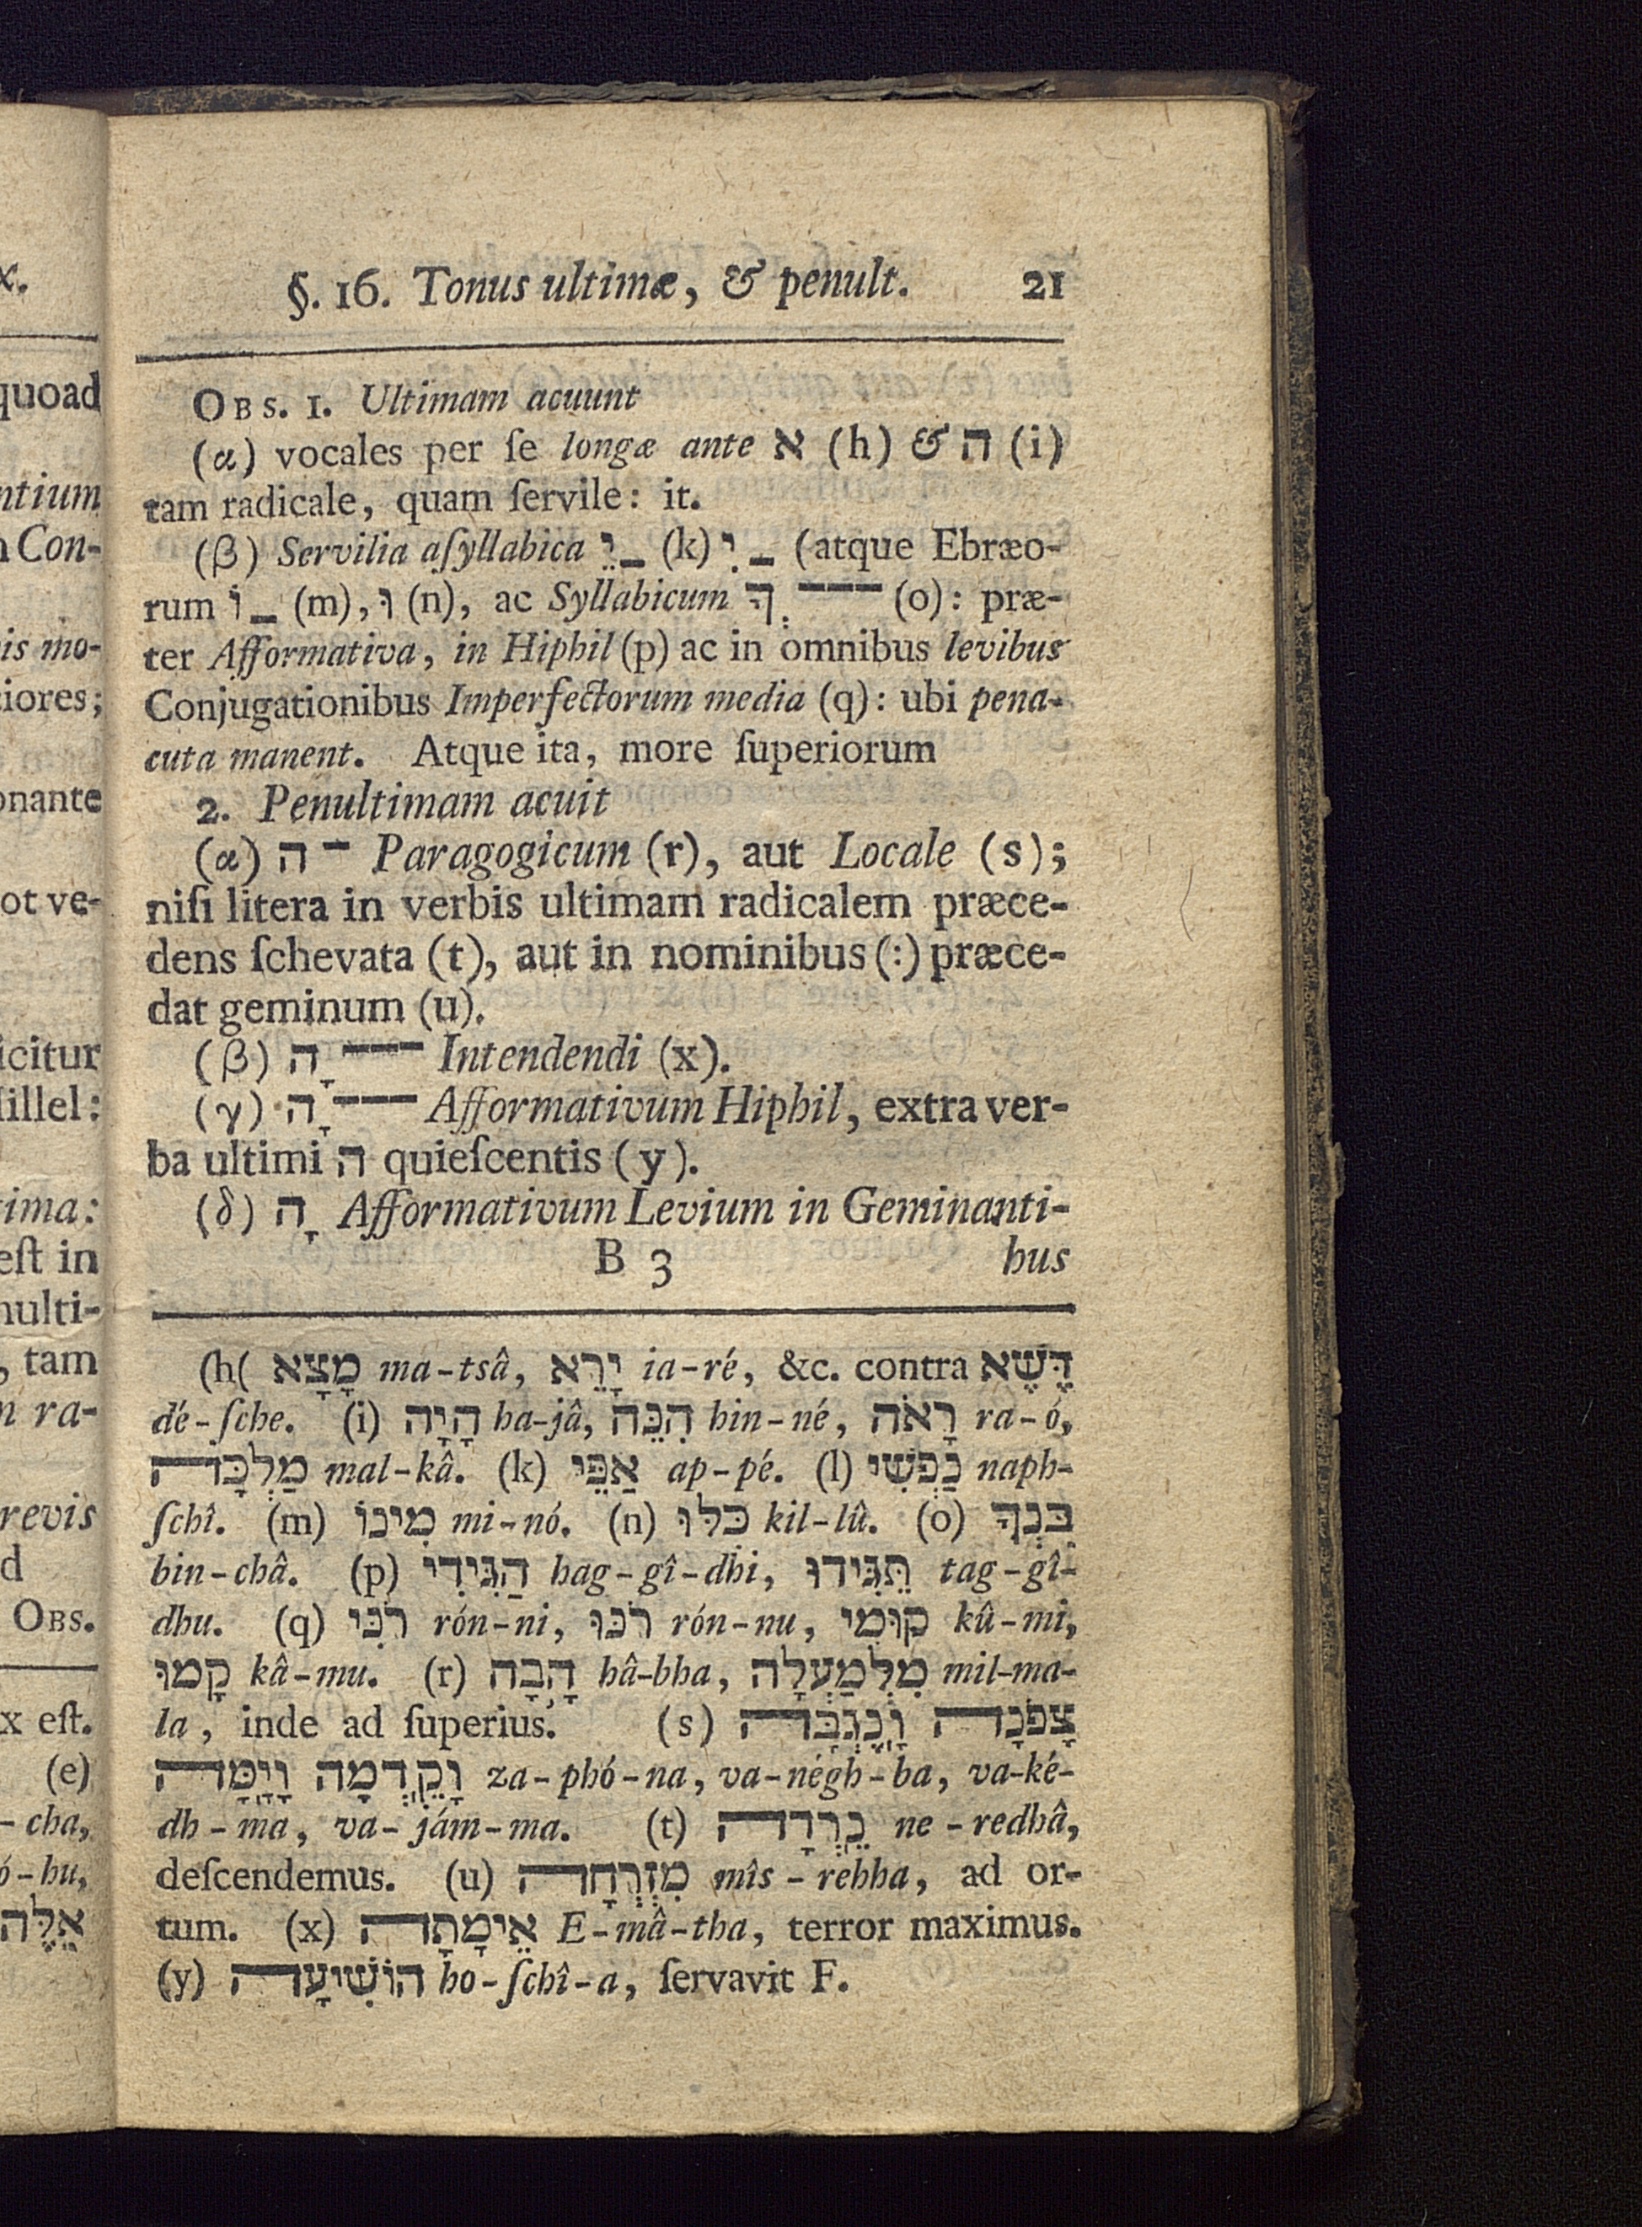 x.
quoad
ntium
n Con-
is mo-
iores;
onante
ot ve-
icitur
illel:
ima:
eſt in
nulti-
, tam
n ra-
revis
d
OBS.
x eſt.
(e)
- cha,
ó-hu,
אֵלֶּה
§. 16. Tonus ultimæ, & penult. 21
OBS. 1. Ultimam acuunt
(α) vocales per ſe longæ ante א (h) & ה (i)
tam radicale, quam ſervile: it.
(β) Servilia aſyllabica יֵ_ (k) יִ_ (atque Ebræo-
rum וֹ_ (m), וּ (n), ac Syllabicum ךָ ְ--- (o): præ-
ter Afformativa, in Hiphil (p) ac in omnibus levibus
Conjugationibus Imperfectorum media (q): ubi pena-
cuta manent. Atque ita, more ſuperiorum
2. Penultimam acuit
(α) ה - Paragogicum (r), aut Locale (s);
niſi litera in verbis ultimam radicalem præce-
dens ſchevata (t), aut in nominibus (:) præce-
dat geminum (u).
(β) הָ --- Intendendi (x).
(γ) הָ --- Afformativum Hiphil, extra ver-
ba ultimi ה quieſcentis (y).
(δ) הָ Afformativum Levium in Geminanti-
B 3 bus
(h( מָצָא ma-tsâ, יָרֵא ia-ré, &c. contra דֶּשֶׁא
dé-ſche. (i) הָיָה ha-jâ, הִנֵּה hin-né, רָאֹה ra-ó,
מַלְכָּה mal-kâ. (k) אַפֵּי ap-pé. (l) נַפְשִׁי naph-
ſchî. (m) מִינוֹ mi-nó. (n) כִּלּוּ kil-lû. (o) בִּנְךָ
bin-châ. (p) הַגִּידִי hag-gî-dhi, תַּגִּידוּ tag-gî-
dhu. (q) רֹנִּי rón-ni, רֹנּוּ rón-nu, קוּמִי kû-mi,
קָמוּ kâ-mu. (r) הָבָה hâ-bha, מִלְמַעְלָה mil-ma-
la, inde ad ſuperius. (s) צָפֹנָה וָנֶגְבָּה
וָקֵדְמָה וָיָמָּה za-phó-na, va-négh-ba, va-ké-
dh-ma, va-jám-ma. (t) נֵרְדָה ne-redhâ,
deſcendemus. (u) מִזְרְחָה mîs-rehha, ad or-
tum. (x) אֵימָתָה E-mâ-tha, terror maximus.
(y) הוֹשִׁיעָה ho-ſchî-a, ſervavit F.